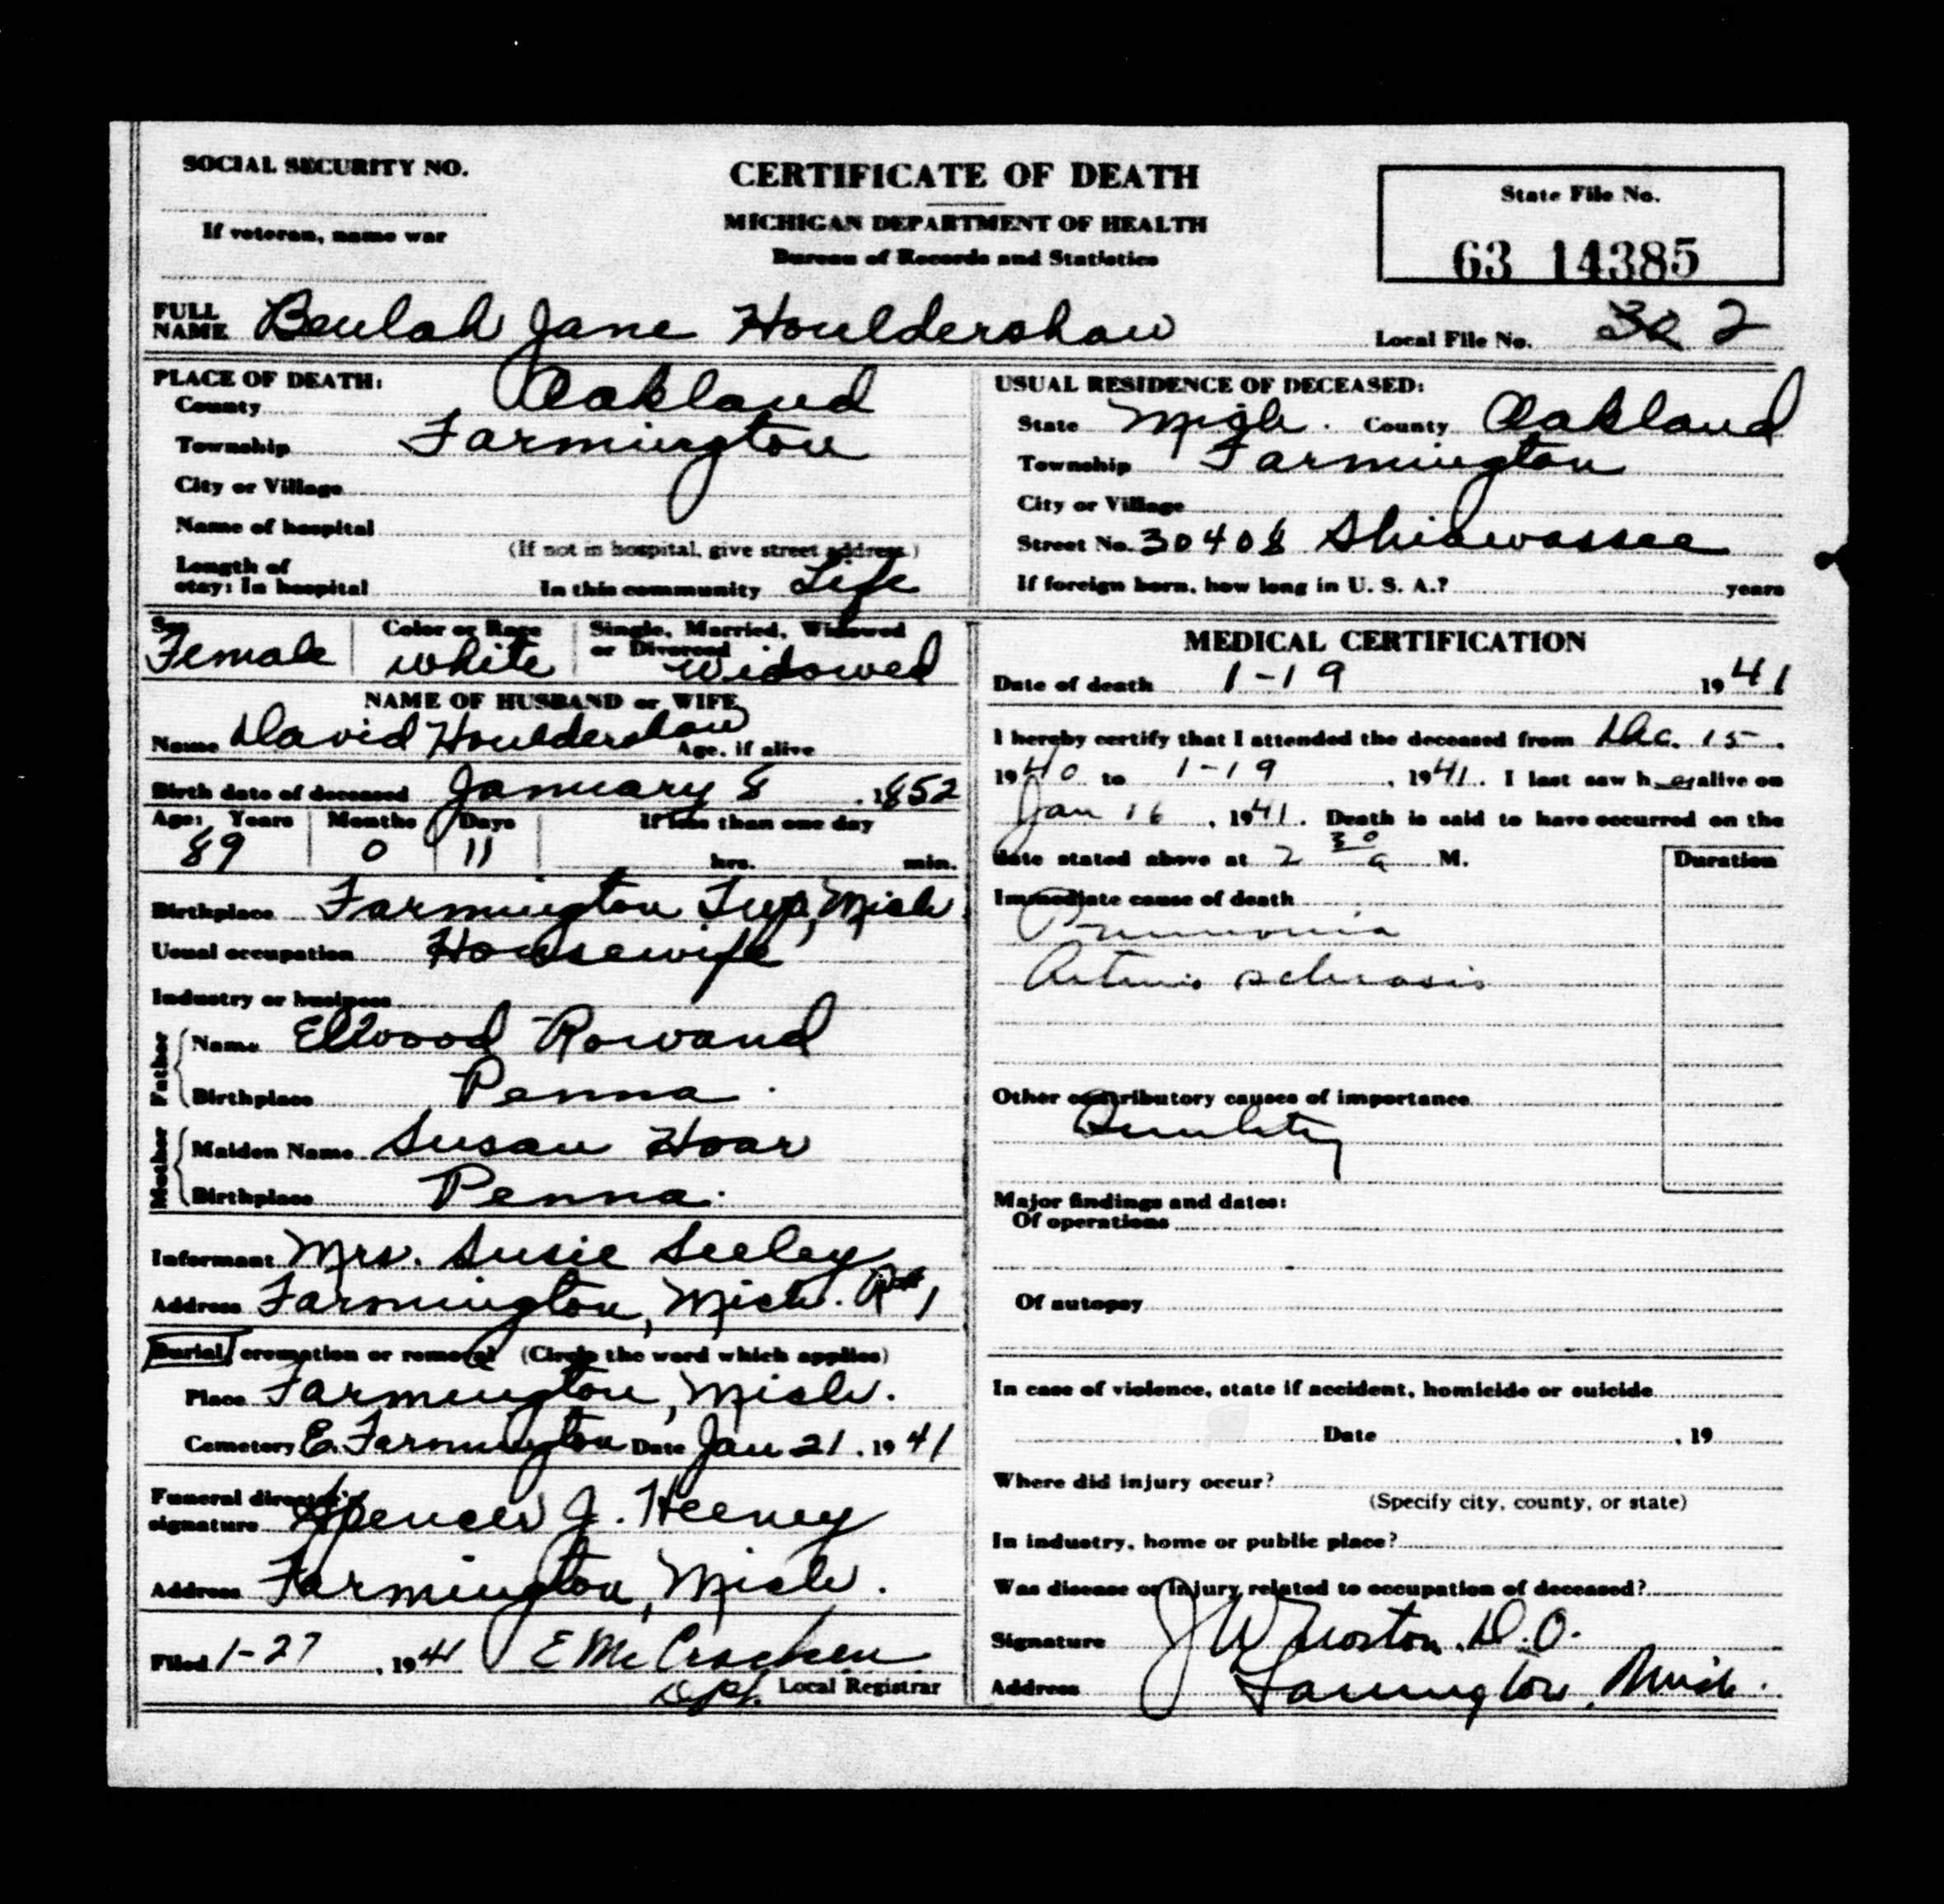 SOCIAL SECURITY NO.
If veteran, name war
CERTIFICATE OF DEATH
MICHIGAN DEPARTMENT OF HEALTH
Bureau of Records and Statistics
State File No.
63 14385
FULL NAME Beulah Jane Houldershaw
Local File No. 32 2
PLACE OF DEATH:
County Oakland
Township Farmington
City or Village
Name of hospital
(If not in hospital, give street address.)
Length of
stay: In hospital In this community Life
USUAL RESIDENCE OF DECEASED:
State Mich. County Oakland
Township Farmington
City or Village
Street No. 30408 Shiawassee
If foreign born, how long in U. S. A.? years
Sex Female
Color or Race white
Single, Married, Widowed
or Divorced Widowed
NAME OF HUSBAND or WIFE
Name David Houldershaw Age, if alive
Birth date of deceased January 8, 1852
Age: Years Months Days If less than one day
89 0 11 hrs. min.
Birthplace Farmington Twp, Mich
Usual occupation Housewife
Industry or business
Father
Name Ellwood Rowand
Birthplace Penna.
Mother
Maiden Name Susan Hoar
Birthplace Penna.
Informant Mrs. Susie Seeley
Address Farmington, Mich. R#1
Burial, cremation or removal (Circle the word which applies)
Place Farmington, Mich.
Cemetery E. Farmington Date Jan 21, 1941
Funeral director's
signature Spencer J. Heeney
Address Farmington, Mich.
Filed 1-27, 1941 E McCracken
Dpt. Local Registrar
MEDICAL CERTIFICATION
Date of death 1-19 1941
I hereby certify that I attended the deceased from Dec. 15,
1940 to 1-19, 1941. I last saw her alive on
Jan 16, 1941. Death is said to have occurred on the
date stated above at 2 30 a M.
Duration
Immediate cause of death
Pneumonia
Arterio sclerosis
Other contributory causes of importance
Major findings and dates:
Of operations
Of autopsy
In case of violence, state if accident, homicide or suicide
Date , 19
Where did injury occur?
(Specify city, county, or state)
In industry, home or public place?
Was disease or injury related to occupation of deceased?
Signature J W Norton, D.O.
Address Farmington, Mich.